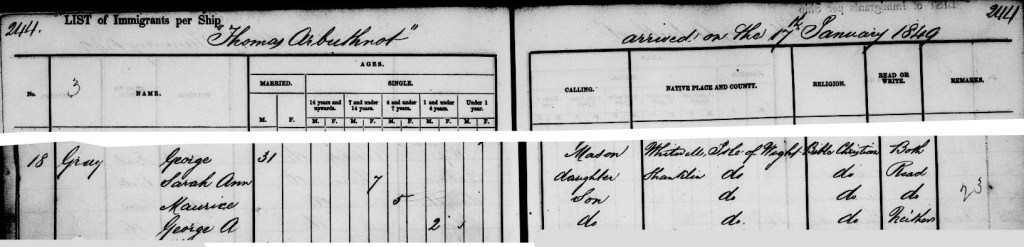 244. LIST of Immigrants per Ship 244
"Thomas Arbuthnot" arrived on the 17th January 1849
No. 3 NAME. AGES. CALLING. NATIVE PLACE AND COUNTY. RELIGION. READ OR WRITE. REMARKS.
MARRIED. SINGLE.
14 years and upwards. 7 and under 14 years. 4 and under 7 years. 1 and under 4 years. Under 1 year.
M. F. M. F. M. F. M. F. M. F. M. F.
18 Gray George 31 Mason Whitwell, Isle of Wight Bible Christian Both
Sarah Ann 7 daughter Shanklin do do Read
Maurice 5 Son do do do do 23
George A 2 do do do. do Neither